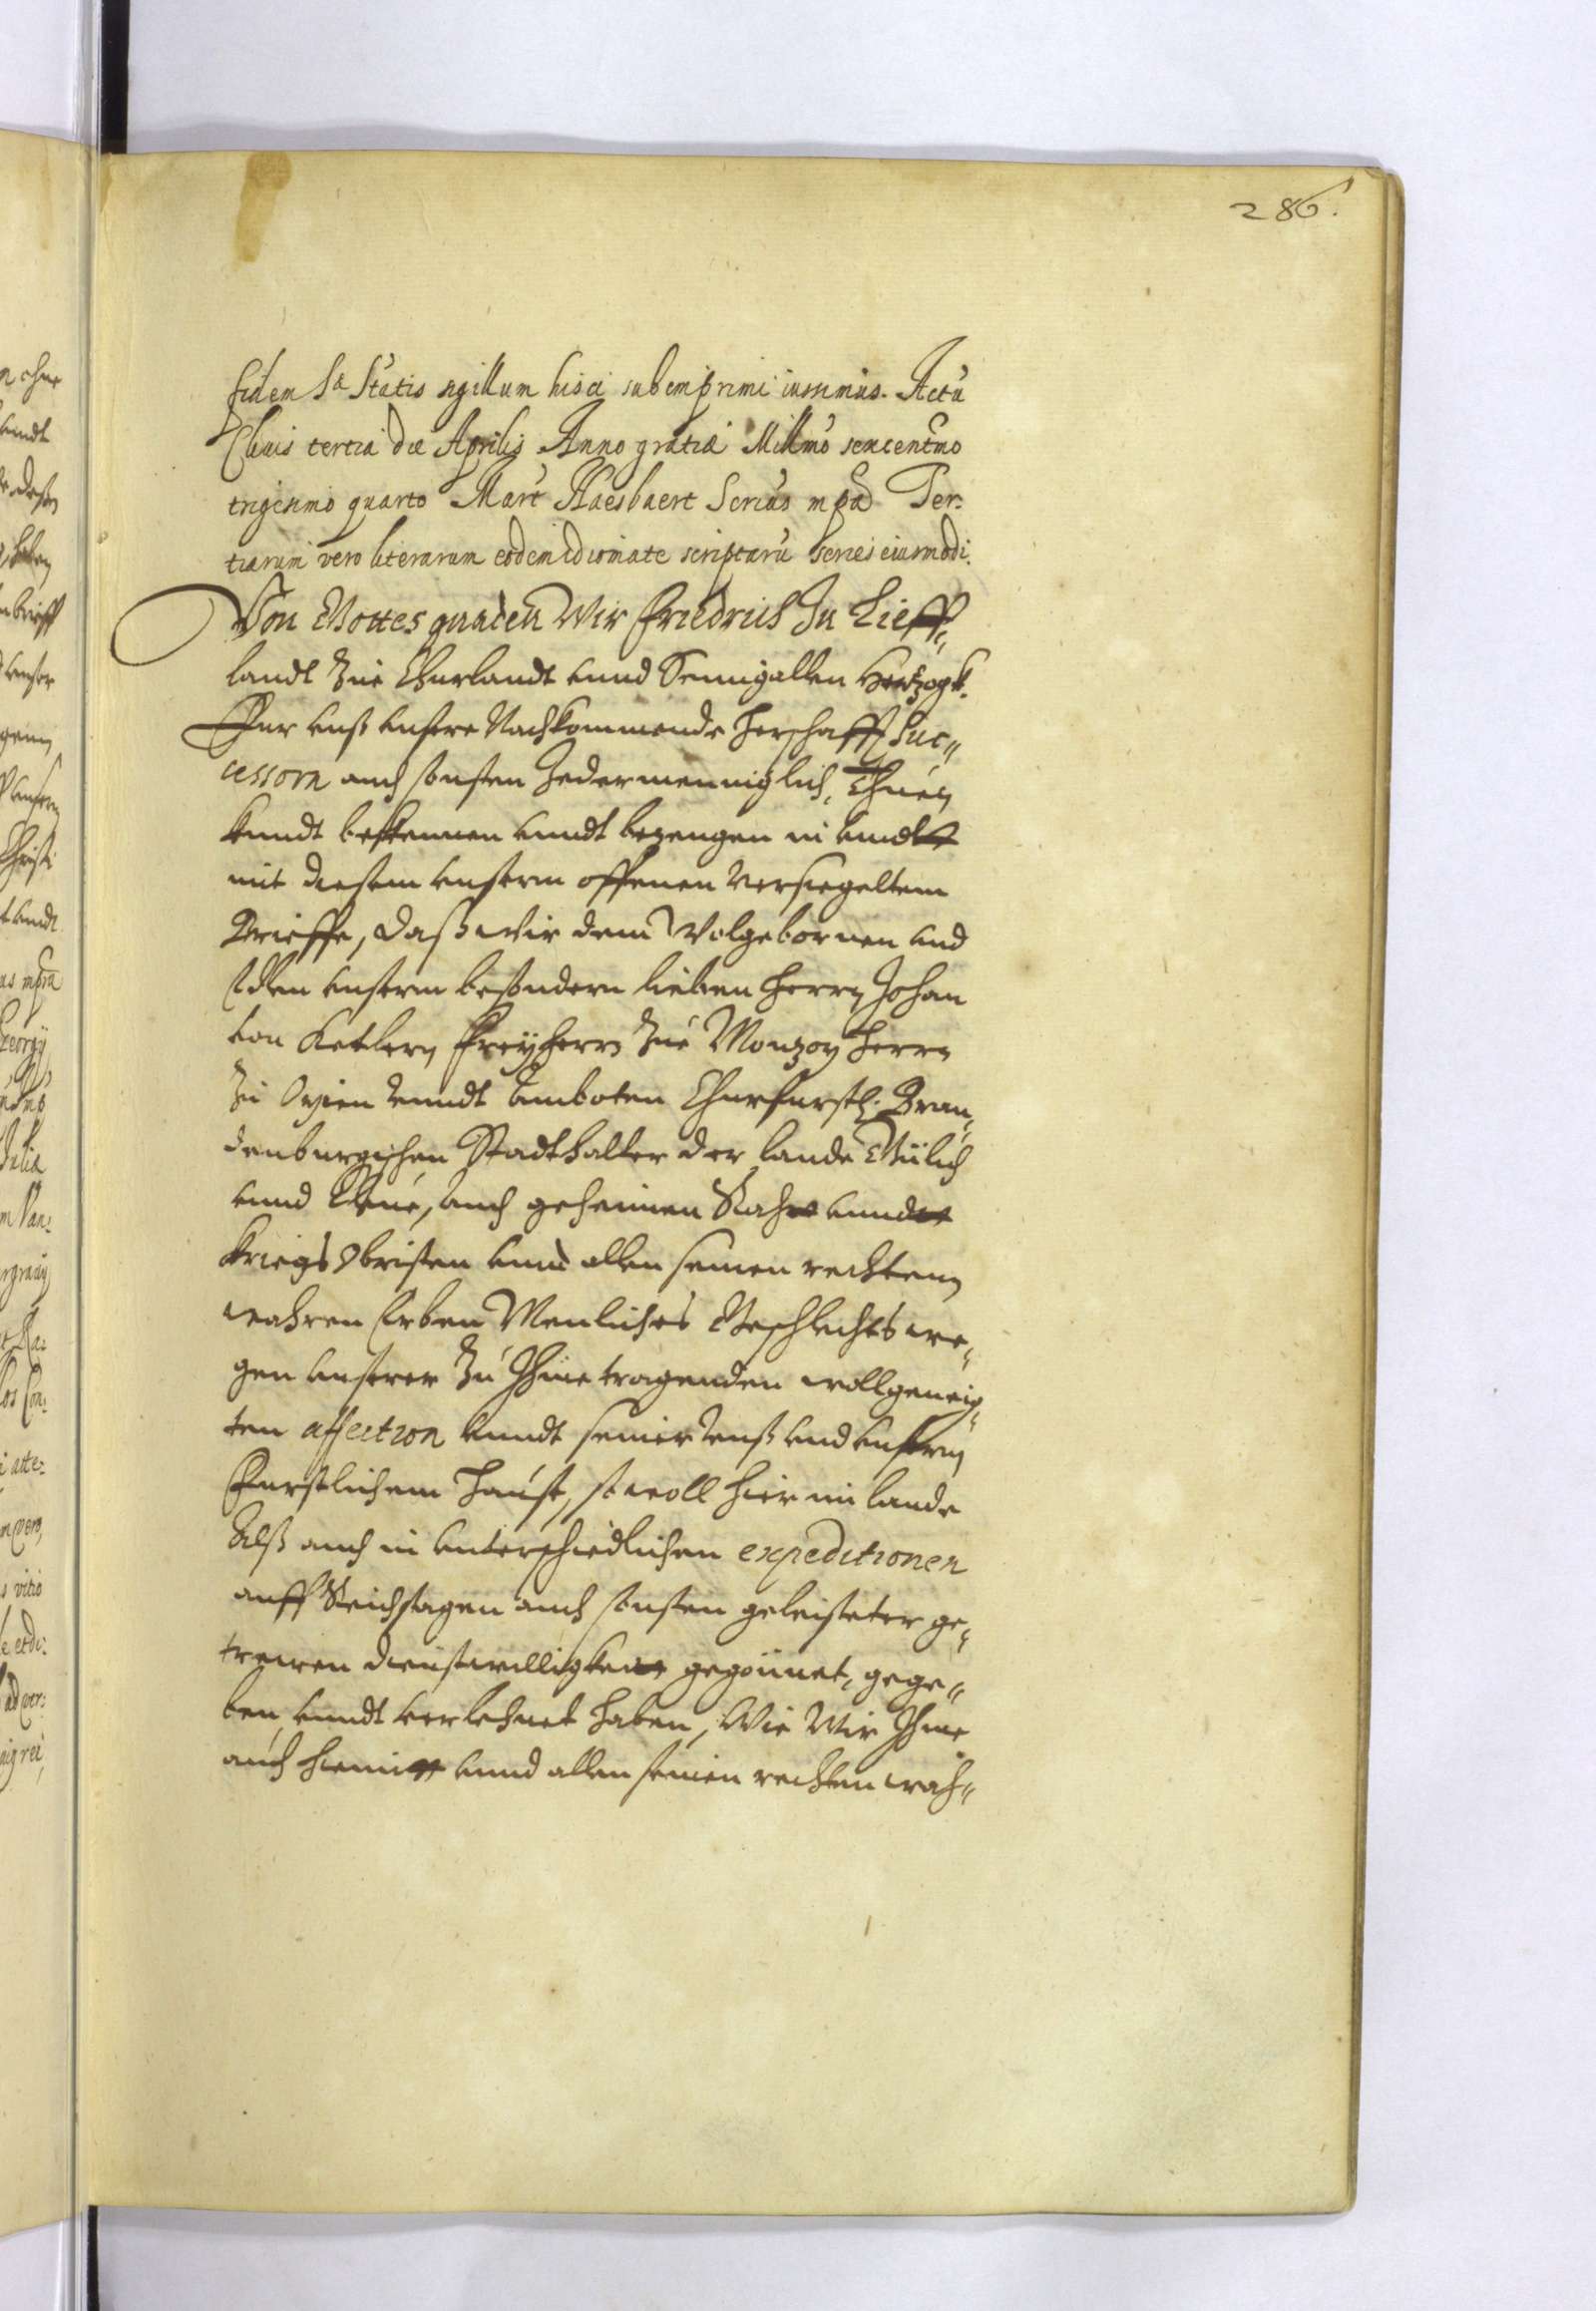 286.
fidem Sæ Statis sigillum hisce subemprimi iussimus. Actū
Clivis tertia die Aprilis Anno gratiæ Millmo sexcentmo
trigesimo quarto Mart Haesbaert Secrius mpa Ter-
tiarum vero literarum eodem idiomate scriptarū series eiusmodi.
Von Gottes gnaden Wir Friedrich In Lieff„
landt Zue Churlandt unnd Semigallen Hertzogk.
Fur unß unsere Nachkommende Herschafft Suc„
cessorn auch sonsten Jedermenniglich, Thuen
kundt bekennen unndt bezeugen in unndt
mit diesem unserm offenen versiegeltem
Brieffe, daß wir dem Wolgebornen und
Edlen unserm besondern lieben Herrn Johan
von Ketlern Freyherrn Zue Monzoy Herrn
Zu Oyien unndt Amboten Churfurstl. Bran„
denburgischen Stadthalter der lande Gülich
unnd Cleve, auch geheimen Raht unndt
Kriegs Obristen unnd allen seinen rechten
wahren Erben Menliches Geschlechts we„
gen unserer Zu Ihme tragenden wollgeneig„
ten affection unndt seiner unß und unserm
Furstlichem Hause, so woll hier im lande
Alß auch in unterschiedlichen expeditionen
auff Reichstagen auch sonsten geleisteter ge„
trewen dienstwilligkeit gegönnet, gege„
ben unndt verlehnet haben, Wie Wir Ihme
auch hiemit unnd allen seinen rechten wah„